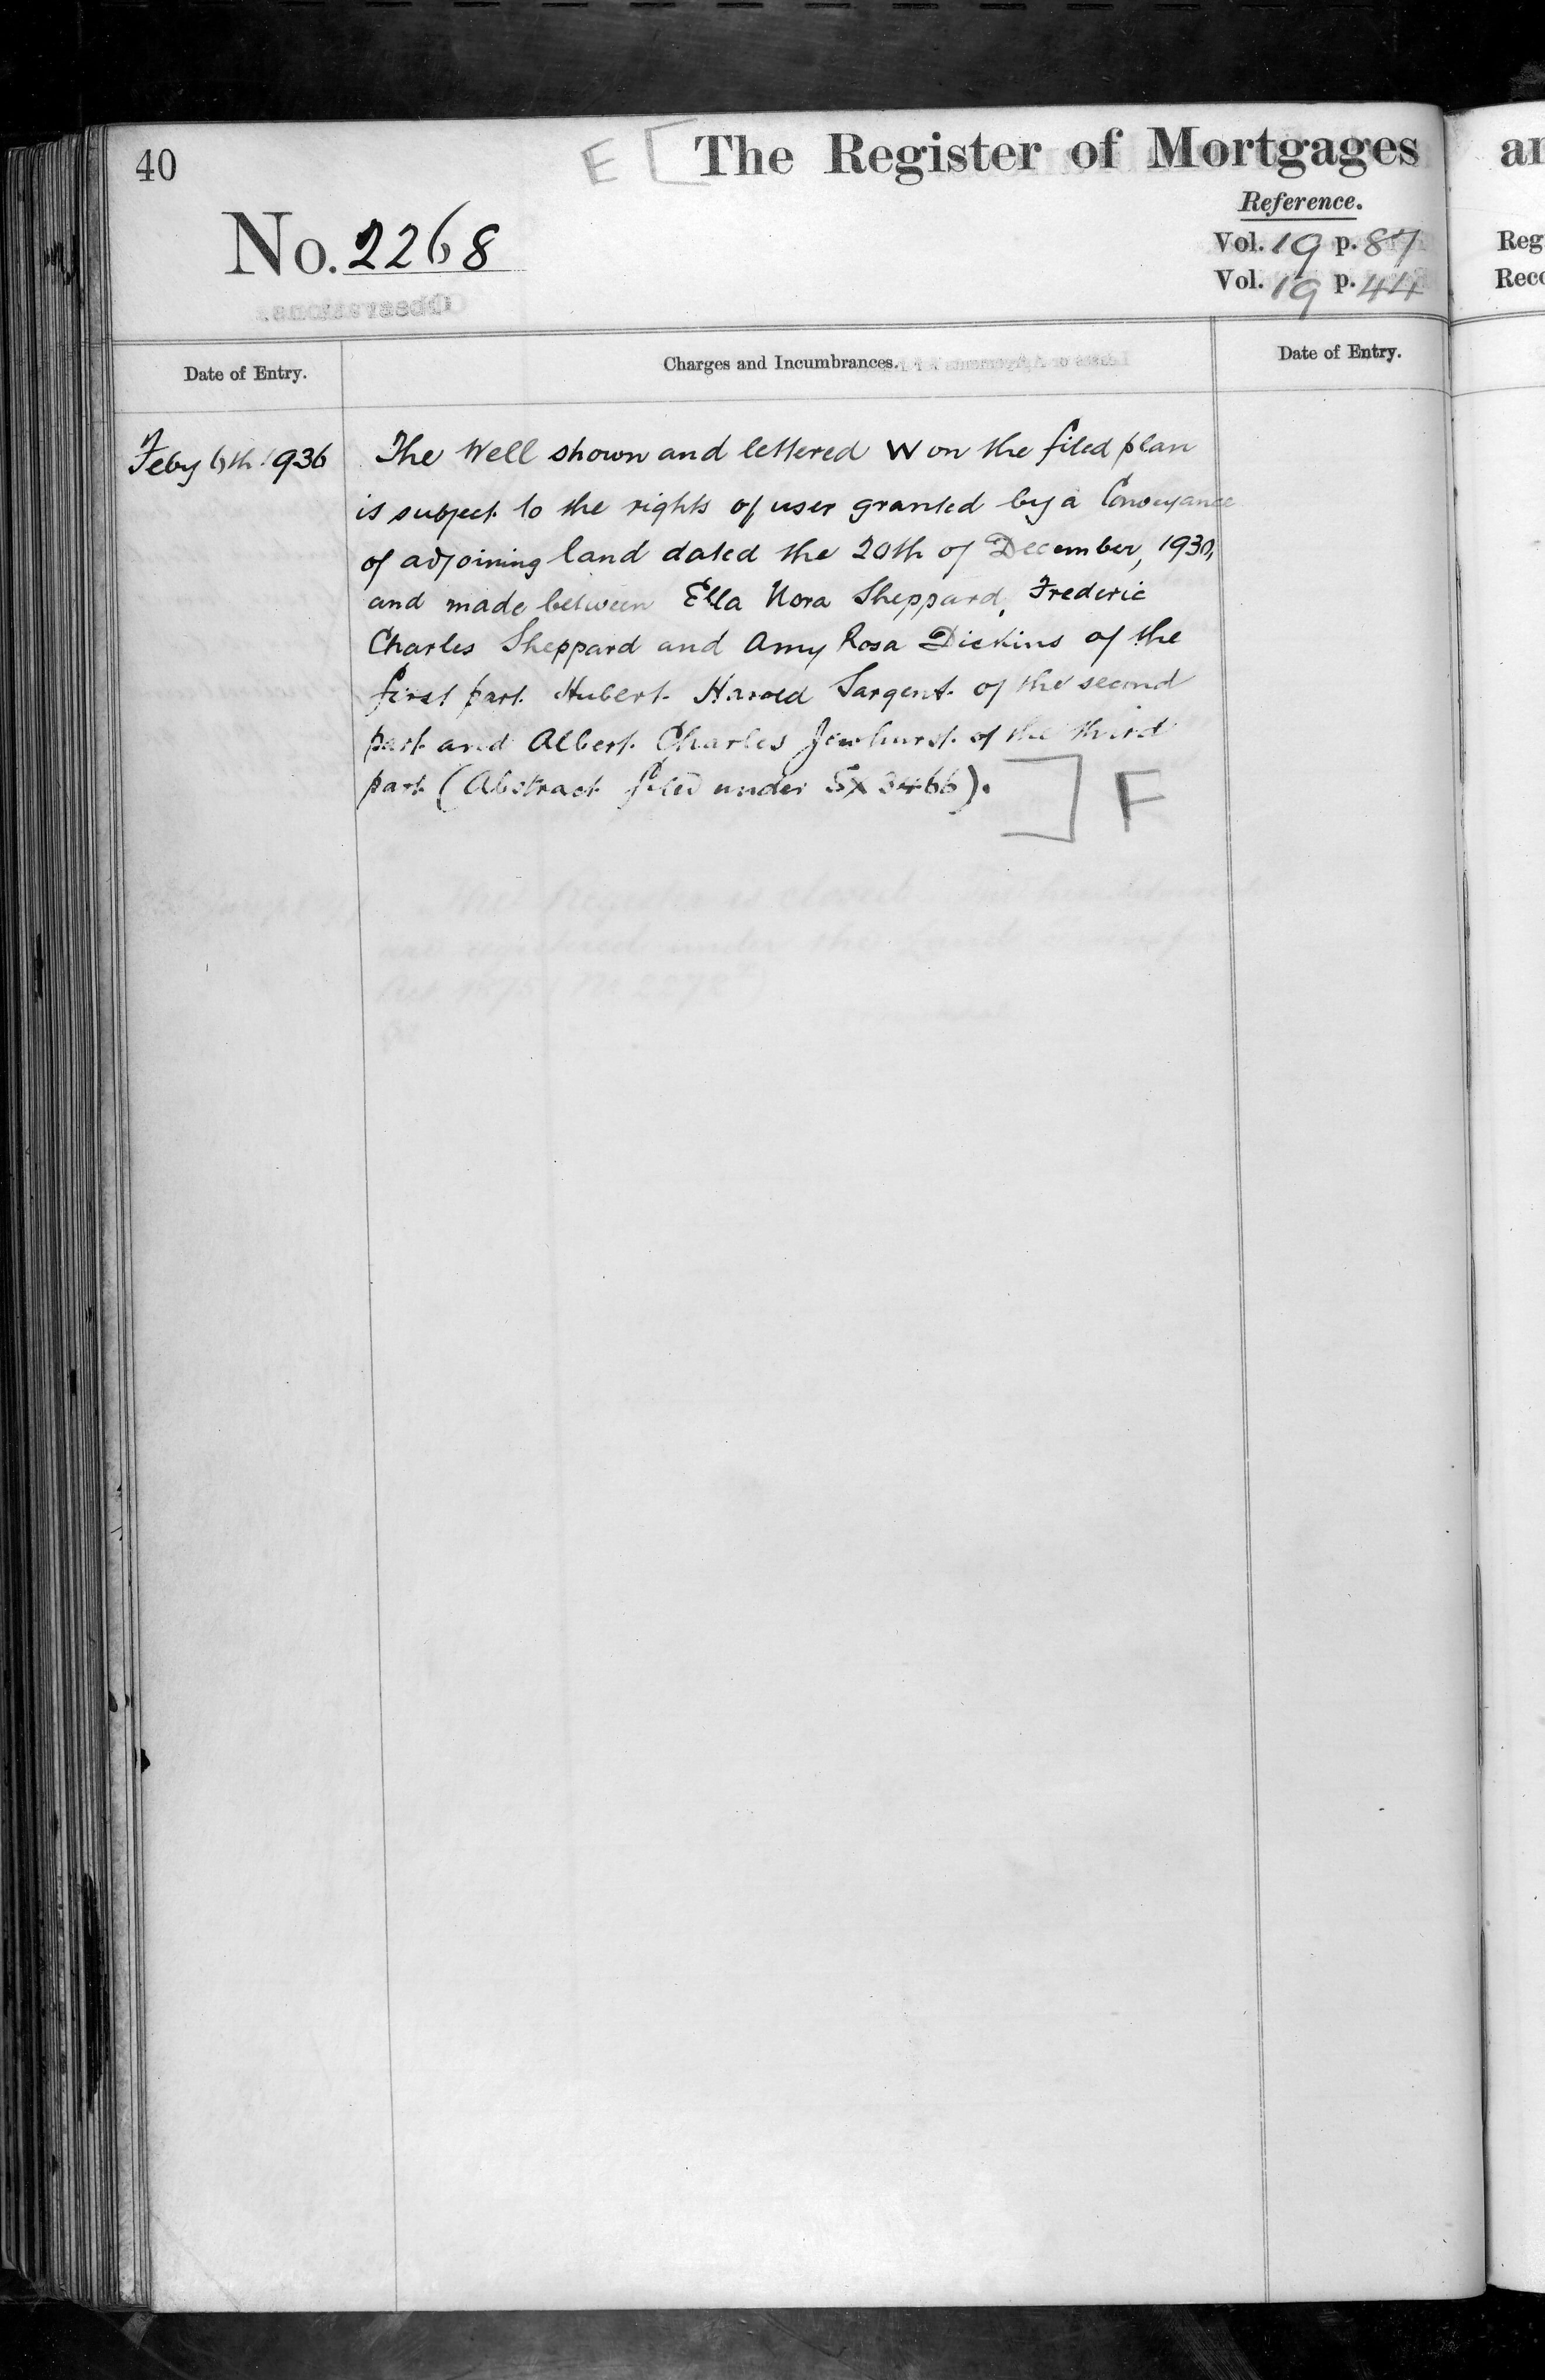 40
E [ The Register of Mortgages
Reference.
No. 2268
Vol. 19 p. 87
Vol. 19 p. 44
Date of Entry.
Charges and Incumbrances.
Date of Entry.
Feby 6th 1936
The Well shown and lettered W on the filed plan
is subject to the rights of user granted by a Conveyance
of adjoining land dated the 20th of December, 1930,
and made between Ella Nora Sheppard, Frederic
Charles Sheppard and Amy Rosa Dickins of the
first part Hubert Harold Sargent of the second
part and Albert Charles of the third
part (Abstract filed under SX 3466). ] F
This Register is closed
are registered under the Land
ar
Reg
Reco